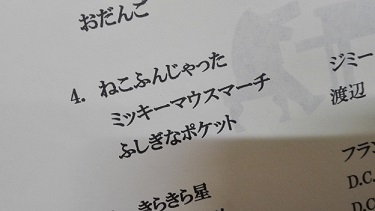 おだんご
4. ねこふんじゃった
ジミー
ミッキーマウスマーチ
渡辺
ふしぎなポケット
フラン
きらきら星
D.C.
D.C.